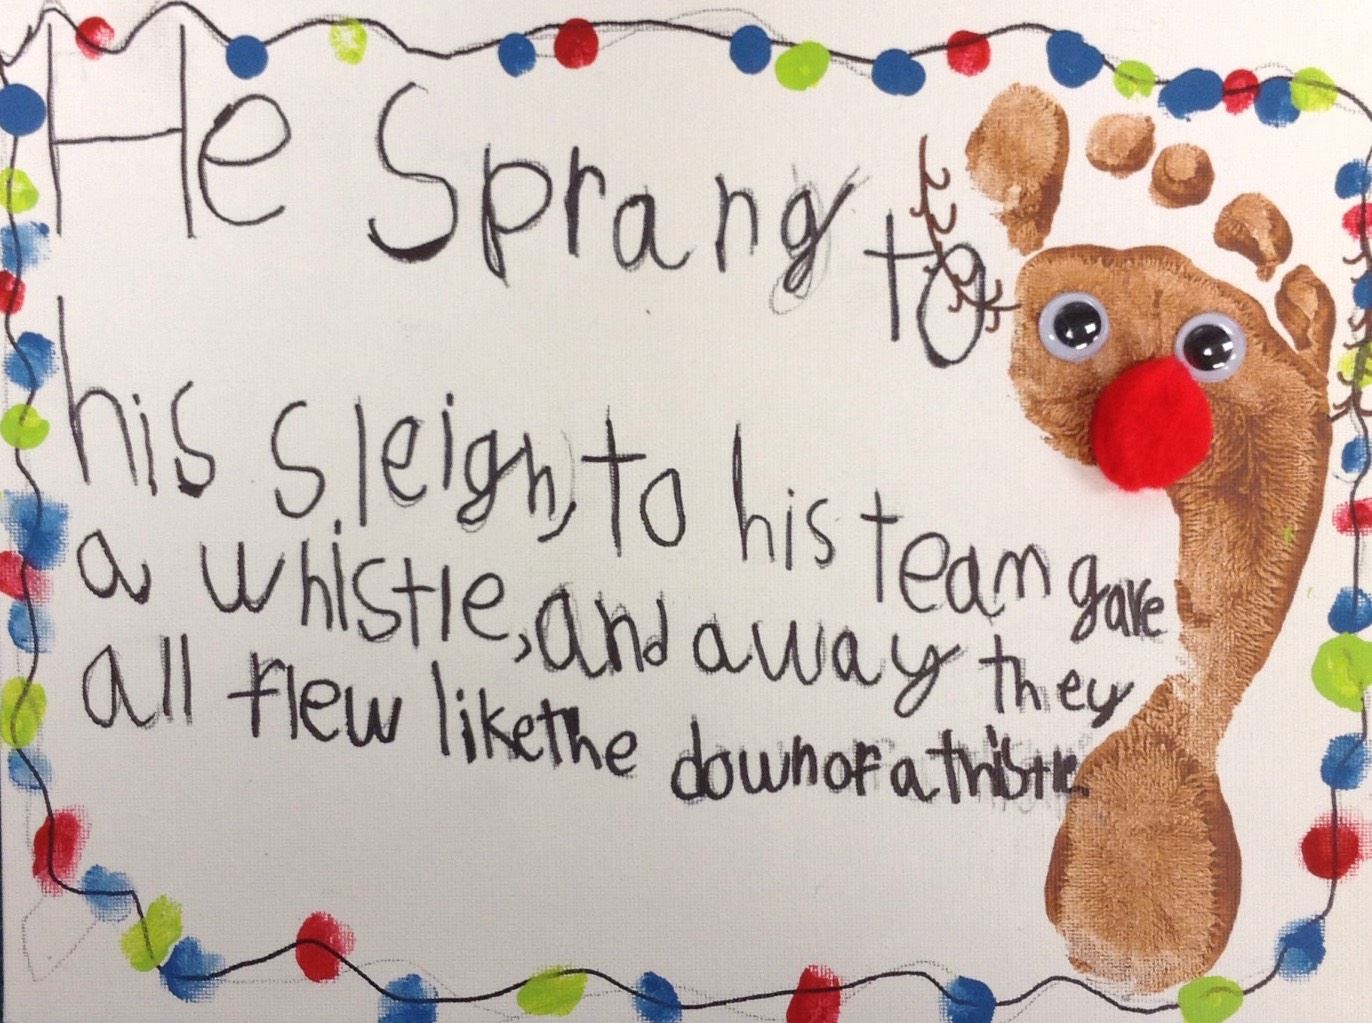 He Sprang to
his sleigh, to his team gave
a whistle, and away they
all flew like the down of a thistle.